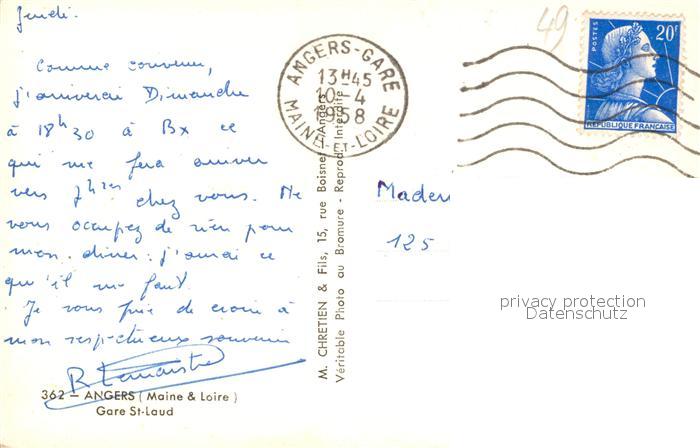 Jeudi.
Comme convenu,
j'arriverai Dimanche
à 18h30 à Bx ce
qui me fera arriver
vers 7 hres chez vous. Ne
vous occupez de rien pour
mon dîner: j'aurai ce
qu'il me faut.
Je vous prie de croire à
mon respectueux souvenir
R Lemaistre
362 — ANGERS (Maine & Loire)
Gare St-Laud
M. CHRETIEN & Fils, 15, rue Boisnet, Angers
Véritable Photo au Bromure - Reprod. Interdite
ANGERS-GARE
13H45
10-4
1958
MAINE-ET-LOIRE
49
POSTES
20F
REPUBLIQUE FRANÇAISE
125
privacy protection
Datenschutz